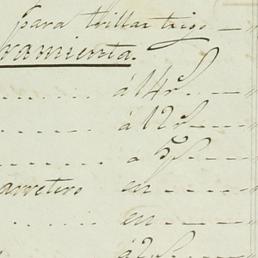 para trillar trigo — "
ramienta.
........ á 14 r —
........ á 12 r —
........ a 5 —
arretero en - - - -
........ en - - - -
á 2